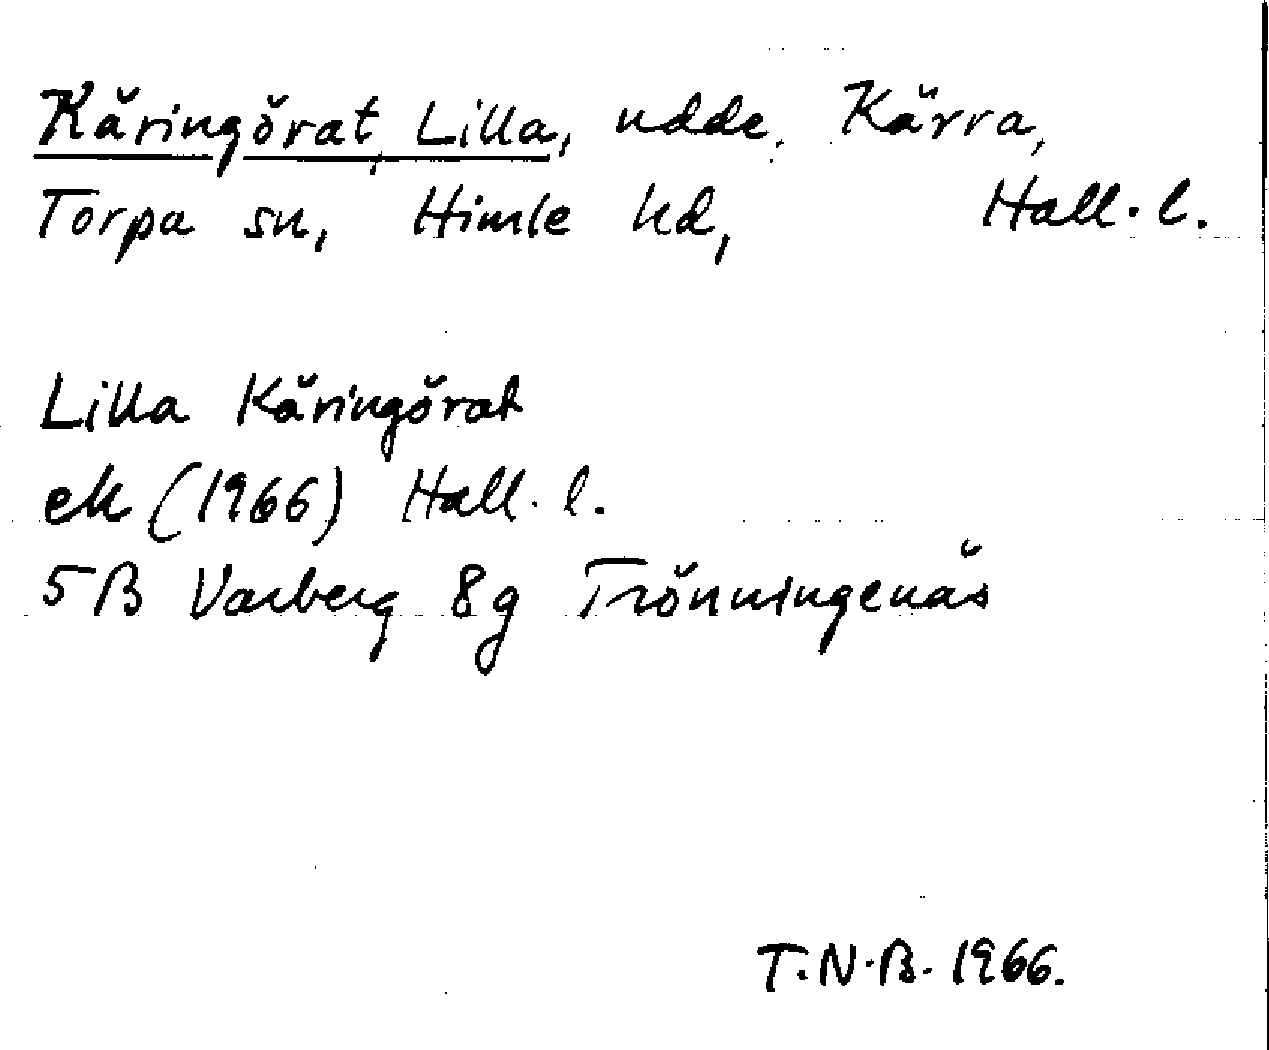 Käringörat, Lilla, udde, Kärra,
Torpa sn, Himle hd, Hall. l.
Lilla Käringörat
ek (1966) Hall. l.
5B Varberg 8g Trönningenäs
T.N.B. 1966.